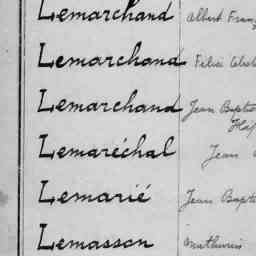 Lemarchand Albert Franç
Lemarchand Félix
Lemarchand Jean Baptis
Lemaréchal Jean
Lemarié Jean Bapt
Lemasson Mathurin